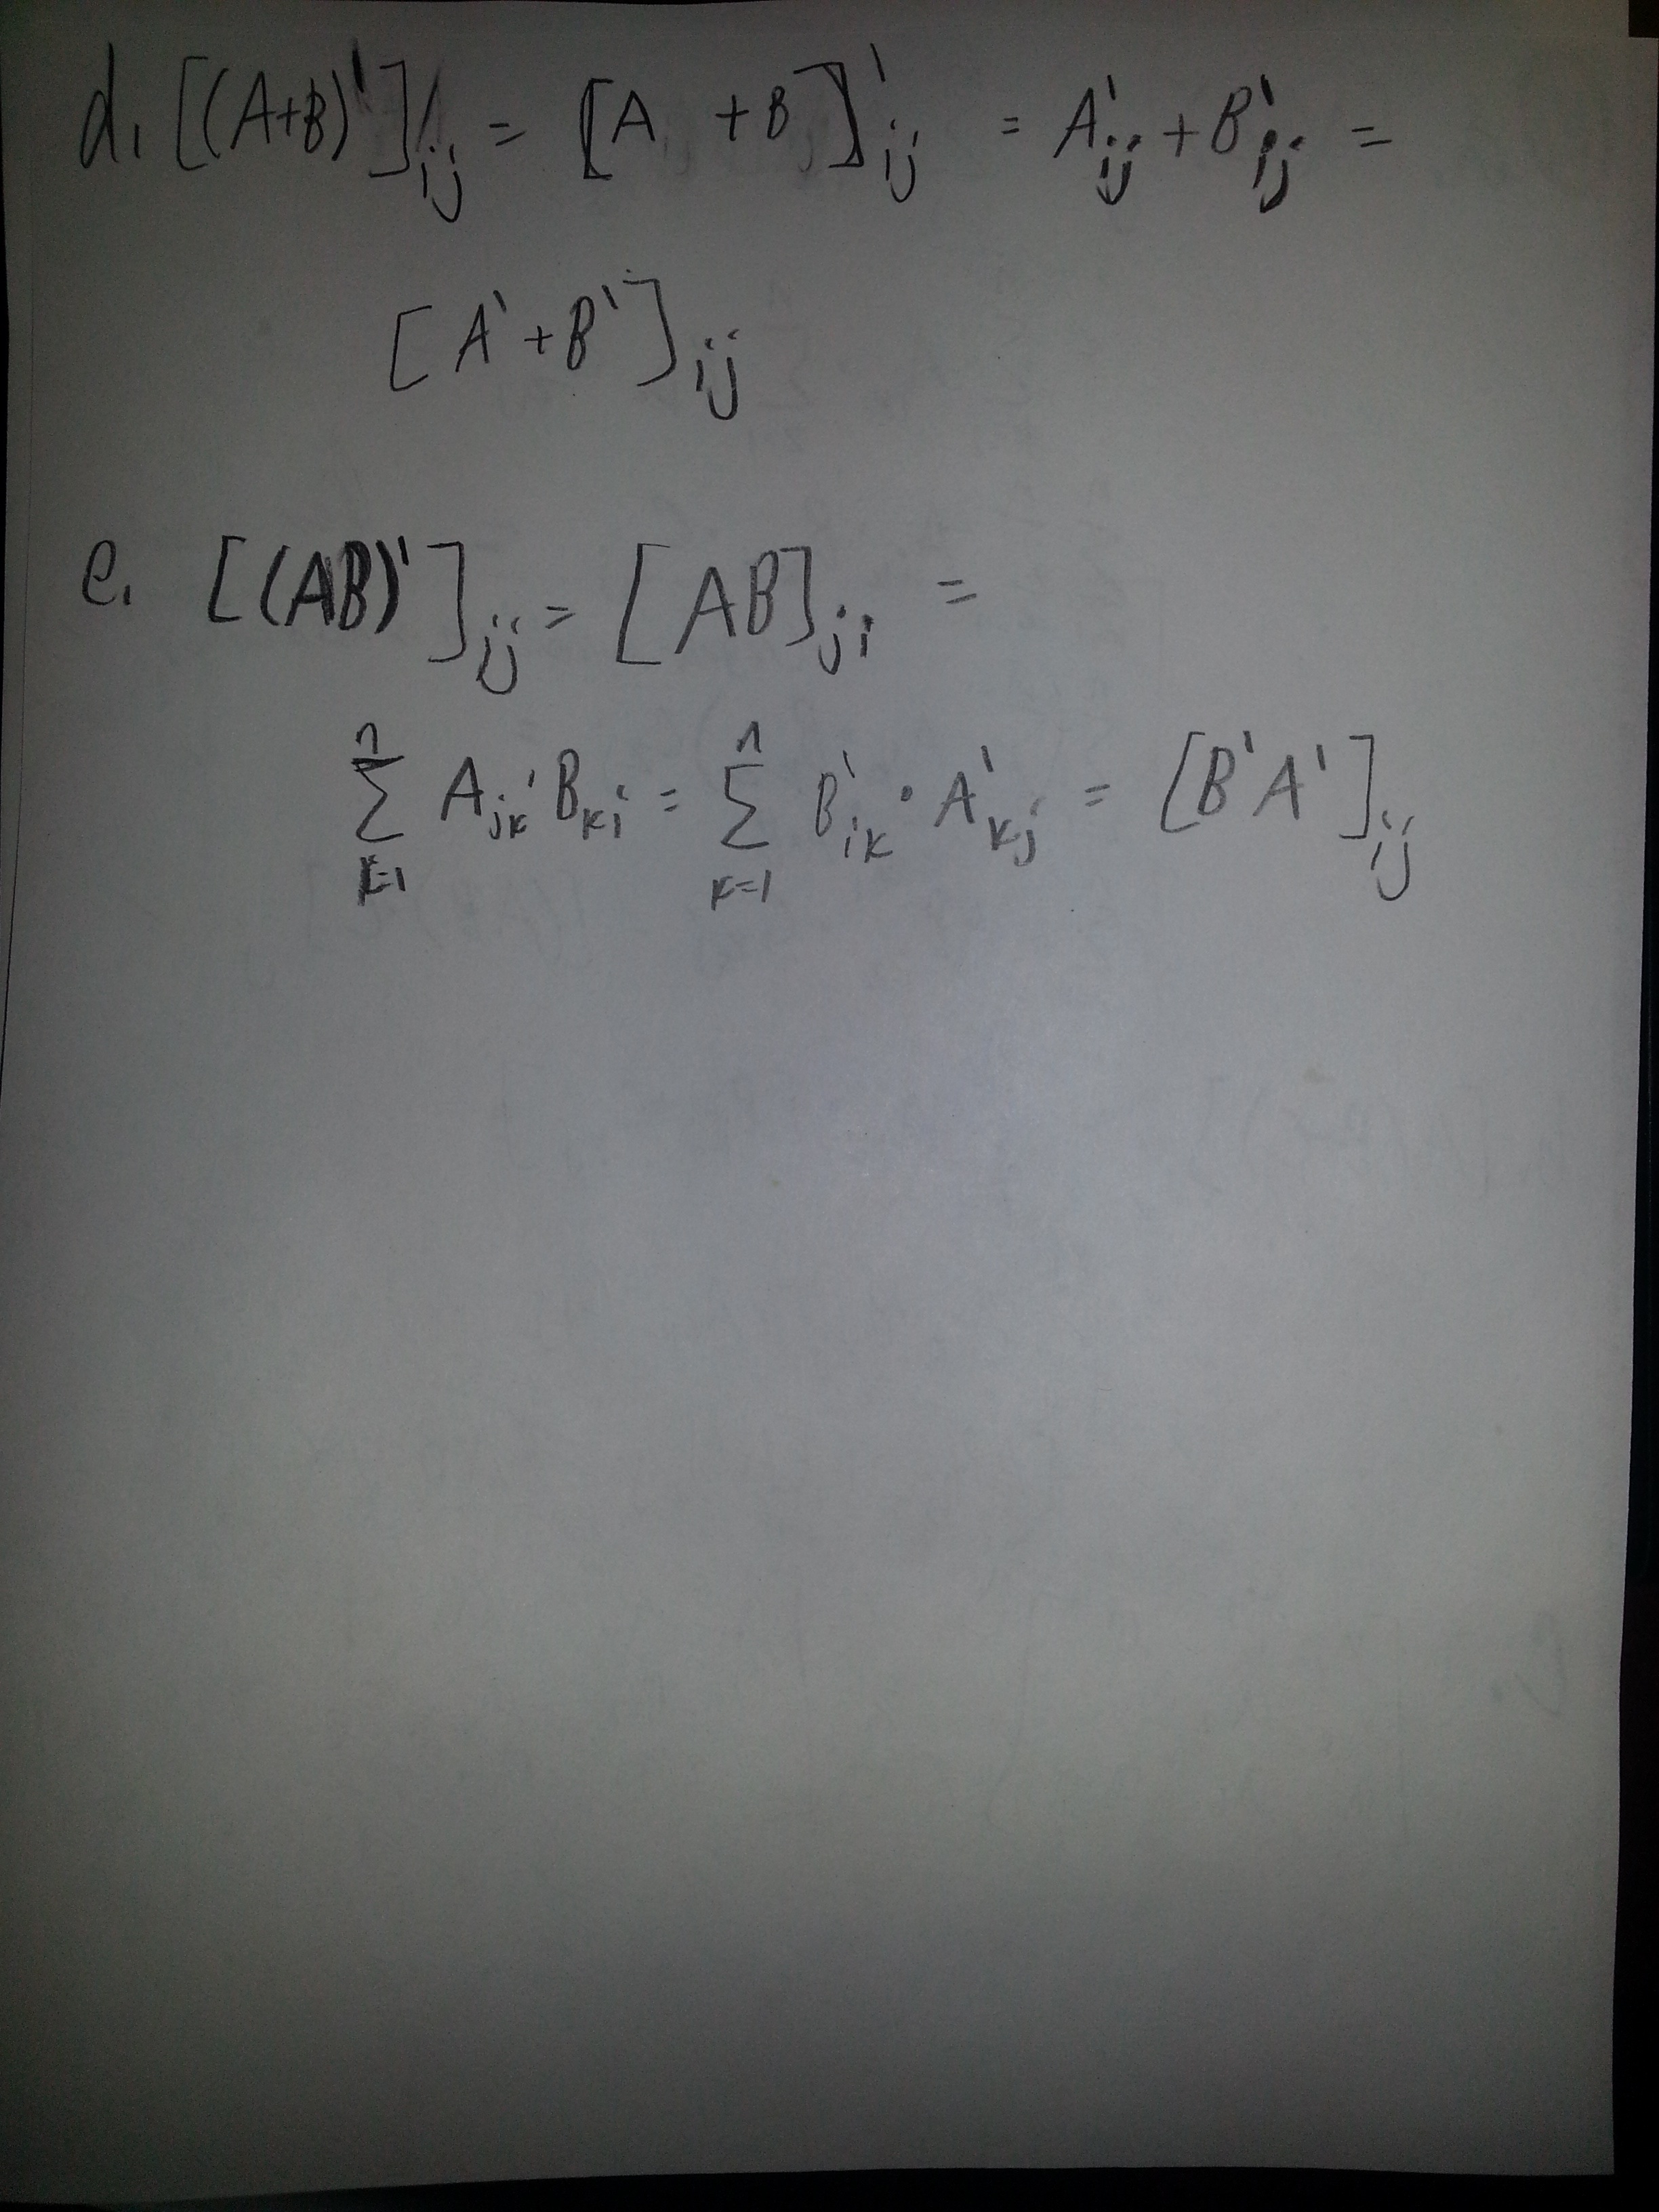 d. [(A+B)']ij = [A + B]'ij = A'ij + B'ij =
[A' + B']ij
e. [(AB)']ij = [AB]ji =
n∑k=1 Ajk · Bki = n∑k=1 B'ik · A'kj = [B'A']ij